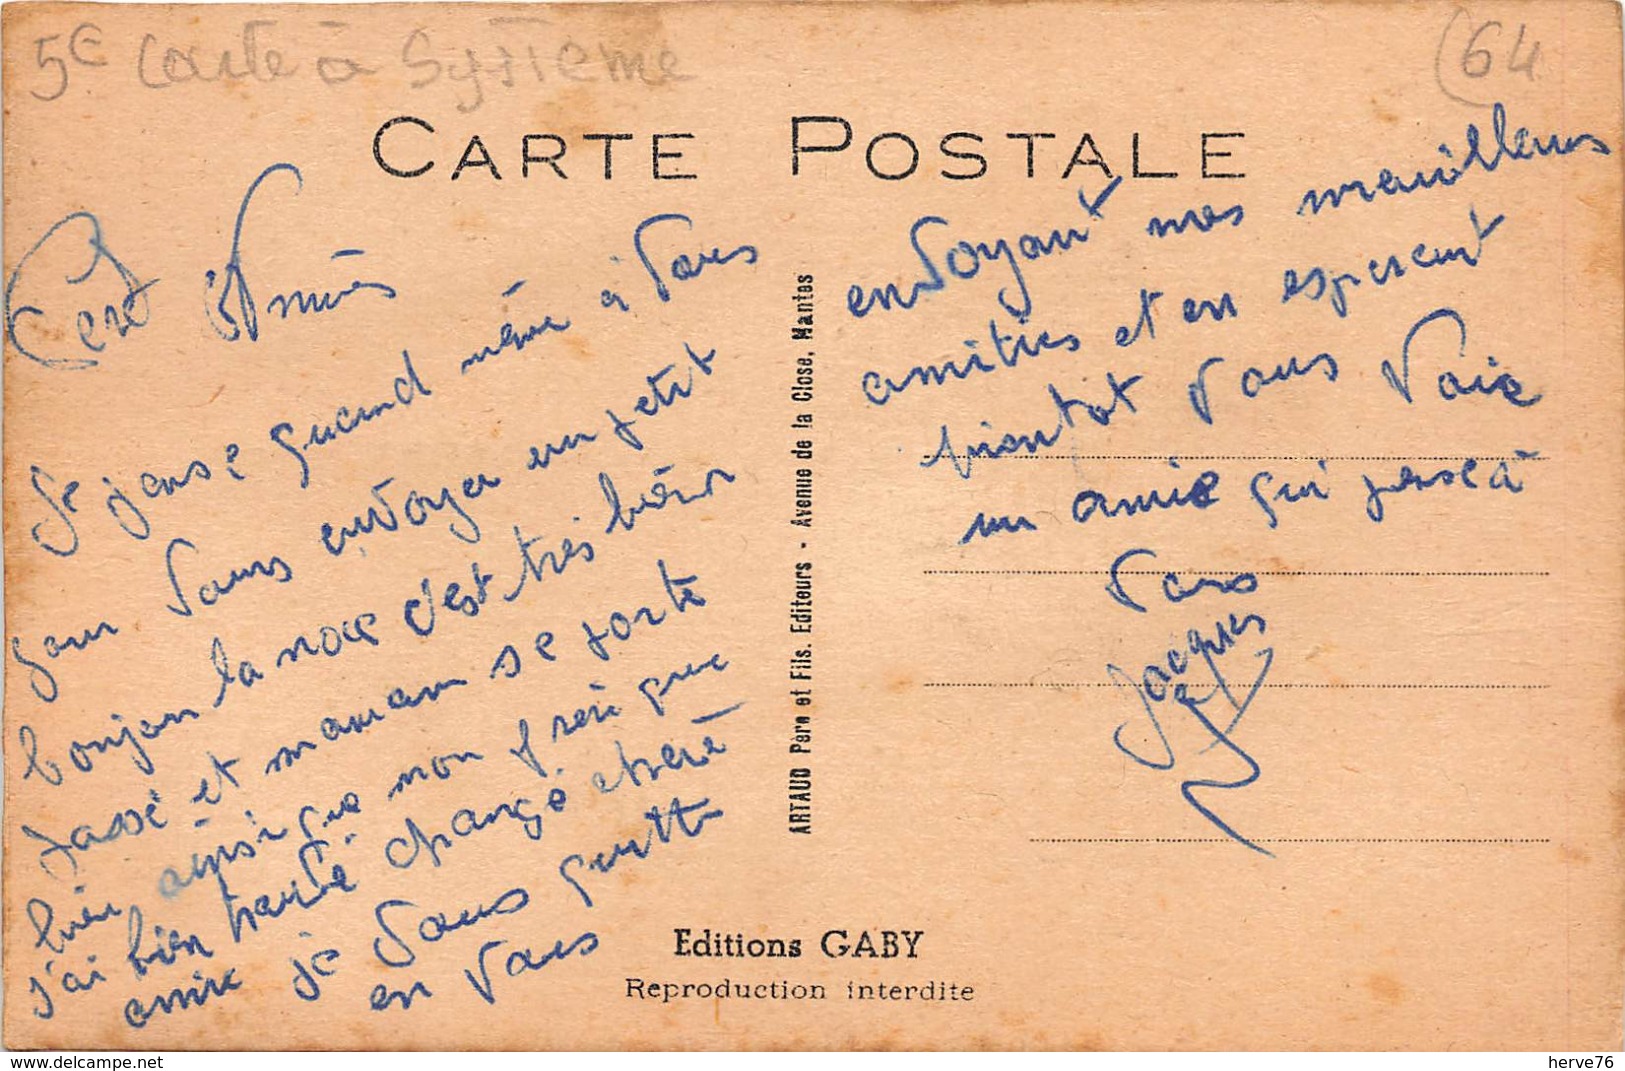 5e Carte à Système
(64
CARTE POSTALE
Je pense quand même à vous
pour vous envoyer un petit
bonjour la noce c'est très bien
passé et maman se porte
bien ainsi que mon frère que
j'ai bien trouvé changé chère
amie je vous quitte
en vous
envoyant mes meilleurs
amitiés et en esperent
bientot vous voir
un amie qui pense à
vous
Jacques
ARTAUD Père et Fils. Editeurs - Avenue de la Close, Nantes
Editions GABY
Reproduction interdite
delcampe.net
herve76